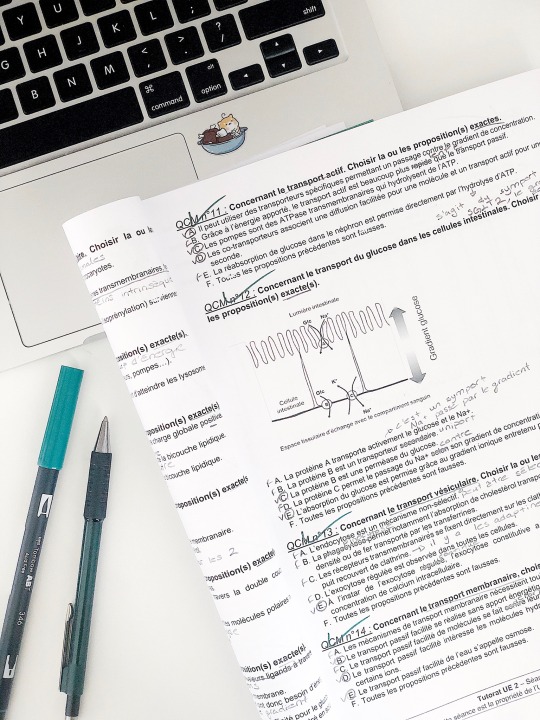 Y U I O P
G H J K L : ; " '
B N M < , > . ? / shift
⌘ command alt option
QCM n°11 : Concernant le transport actif. Choisir la ou les proposition(s) exactes.
A. Il peut utiliser des transporteurs spécifiques permettant un passage contre le gradient de concentration.
B. Grâce à l'énergie apporté, le transport actif est beaucoup plus rapide que le transport passif.
C. Les pompes sont des ATPase transmembranaires qui hydrolysent de l'ATP.
D. Les co-transporteurs associent une diffusion facilitée pour une molécule et un transport actif pour une
seconde.
E. La réabsorption de glucose dans le néphron est permise directement par l'hydrolyse d'ATP.
F. Toutes les propositions précédentes sont fausses.
s'agit du symport
QCM n°12 : Concernant le transport du glucose dans les cellules intestinales. Choisir
les proposition(s) exacte(s).
Lumière intestinale
Glc Na+
Gradient glucose
Cellule
intestinale
Glc K+
Na+
Espace tissulaire d'échange avec le compartiment sanguin
c'est un symport
Na+ passe par le gradient
A. La protéine A transporte activement le glucose et le Na+.
B. La protéine B est un transporteur secondaire. uniport
C. La protéine B est une perméase du glucose. contre
D. La protéine C permet le passage du Na+ selon son gradient de concentration
E. L'absorption du glucose est permise grâce au gradient ionique entretenu p
F. Toutes les propositions précédentes sont fausses.
QCM n°13 : Concernant le transport vésiculaire. Choisir la ou les
A. L'endocytose est un mécanisme non-sélectif. peut être
B. La phagocytose permet notamment l'absorption de cholestérol transpor
densité ou de fer transporté par la transferrines.
C. Les récepteurs transmembranaires se fixent directement sur les clat
puit recouvert de clathrine. → il y a les
D. L'exocytose régulée est observée dans toutes les cellules.
E. A l'instar de l'exocytose régulée, l'exocytose constitutive a
concentration de calcium intracellulaire.
F. Toutes les propositions précédentes sont fausses.
QCM n°14 : Concernant le transport membranaire, choisi
A. Les mécanismes de transport membranaire nécessitent tou
B. Le transport passif facilité se réalise sans apport énergé
C. Le transport passif facilité de molécules se fait contre leur
D. Le transport passif facilité intéresse les molécules hydr
certains ions.
E. Le transport passif facilité de l'eau s'appelle osmose.
F. Toutes les propositions précédentes sont fausses.
Tutorat UE 2 – Séan
séance est la propriété de l'U
re. Choisir la ou le
caryotes.
es transmembranaires
intrinsèque
soprénylation) survienne
osition(s) exacte(s).
d'énergie
s, pompes...).
d'atteindre les lysosom
oposition(s) exacte(s)
charge globale positive
a bicouche lipidique.
couche lipidique.
roposition(s) exacte(s
membranaire.
les 2
oposition(s) exacte
ers la double co
molécules polaire
osition(s) exacte(s)
eurs.ligands-à-tra
membrane.
ont donc besoin d'en
Tombow ABT
346